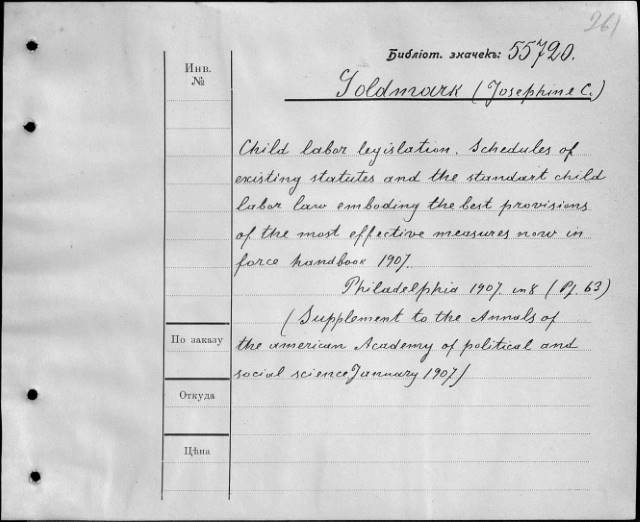 261
Библіот. значекъ: 55720.
Инв.
№
Goldmark (Josephine C.)
Child labor legislation. Schedules of
existing statutes and the standart child
labor law emboding the best provisions
of the most effective measures now in
force handbook 1907.
Philadelphia 1907. in 8 (Pj. 63)
(Supplement to the Annals of
По заказу
the american Academy of political and
social science January 1907)
Откуда
Цѣна